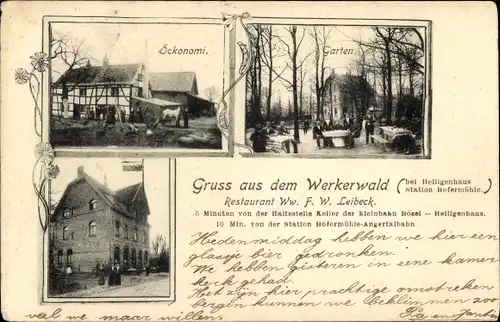 Öckonomi.
Garten.
Gruss aus dem Werkerwald (bei Heiligenhaus Station Hofermühle.)
Restaurant Ww. F. W. Leibeck.
5 Minuten von der Haltestelle Keller der kleinbahn Hösel -- Heiligenhaus.
10 Min. von der Station Hofermühle-Angertalbahn.
Hedenmiddag hebben we hier een
glaasje bier gedronken.
We hebben gisteren in eene kamer
kerk gehad.
Het zijn hier prachtige omstreken
bergen kunnen we beklimmen zoo
veel we maar willen.